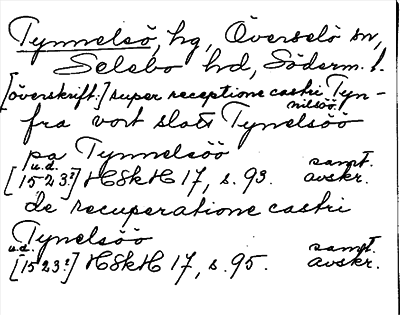 Tynnelsö, hg, Överselö sn,
Selebo hd, Söderm. l.
[överskrift:] super receptione castri Tyn-
nilsöö.
fra vort slott Tynelsöö
pa Tynnelsöö
u.d.
[1523?] HSkH 17, s. 93. samt. avskr.
de recuperatione castri
Tynelsöö
u.d.
[1523?] HSkH 17, s. 95. samt. avskr.